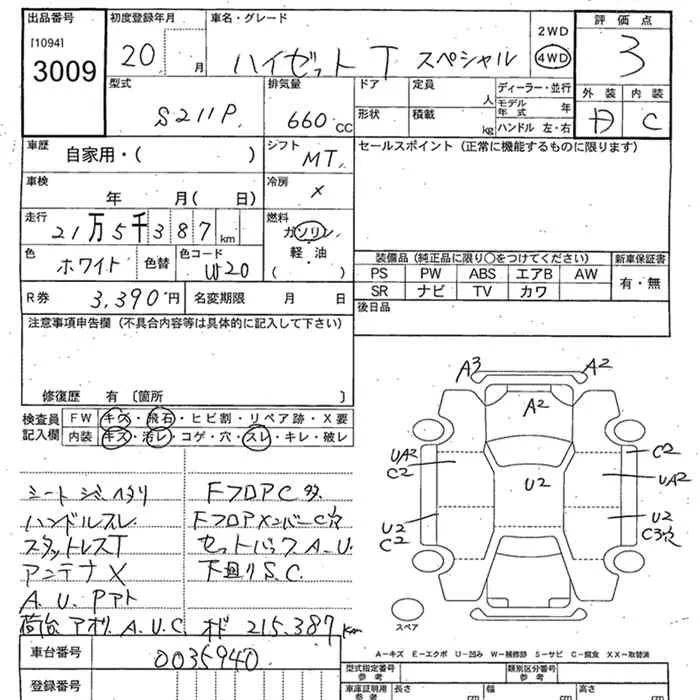 出品番号 初度登録年月 車名・グレード 2WD 評価点
[1094] 3009 20 月 ハイゼット T スペシャル 4WD 3
外装 内装
型式 排気量 ドア 定員 人 ディーラー・並行
S211P 660 CC 形状 積載 kg モデル年式 年 C
ハンドル 左・右
車歴 自家用・( ) シフト MT セールスポイント (正常に機能するものに限ります)
車検 年 月( 日) 冷房 ×
走行 21万5千387km 燃料 ガソリン
軽・油
( )
色 ホワイト 色替 色コード W20 装備品 (純正品に限り〇をつけてください) 新車保証書
PS PW ABS エアB AW 有・無
SR ナビ TV カワ
R券 3,390円 名変期限 月 日 後日品
注意事項申告欄 (不具合内容等は具体的に記入して下さい)
修復歴 有 〔箇所 〕
検査員記入欄 FW キズ・飛石・ヒビ割・リペア跡・X要
内装 キズ・汚レ・コゲ・穴・スレ・キレ・破レ
A3 A2
A2
UA2 C2 C2
C2 U2 UA2
U2 U2
C2 C3穴
シートジ・ヘタリ FフロアC多
ハンドルスレ FフロアメンバーC穴
スタットレスT セットバックA.U.
アンテナX 下廻りS.C.
A.U.Pアト
荷台アオリA.U.C. オド 215,387km
スペア
A－キズ E－エクボ U－凹み W－補修跡 S－サビ C－腐食 XX－取替済
車台番号 0035940
型式指定番号 参考 類別区分番号 参考
登録番号 車庫証明用 参考 長さ cm 幅 cm 高さ cm